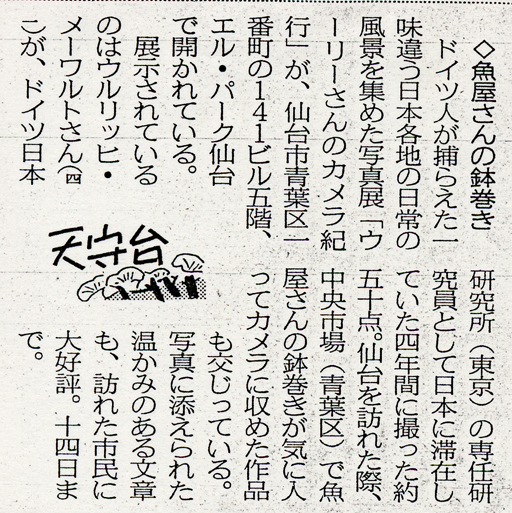 ◇魚屋さんの鉢巻き
ドイツ人が捕らえた一
味違う日本各地の日常の
風景を集めた写真展「ウ
ーリーさんのカメラ紀
行」が、仙台市青葉区一
番町の141ビル五階、
エル・パーク仙台
で開かれている。
展示されている
のはウルリッヒ・
メーワルトさん(四
こが、ドイツ日本
研究所(東京)の専任研
究員として日本に滞在し
ていた四年間に撮った約
五十点。仙台を訪れた際、
中央市場(青葉区)で魚
屋さんの鉢巻きが気に入
ってカメラに収めた作品
も交じっている。
写真に添えられた
温かみのある文章
も、訪れた市民に
大好評。十四日ま
で。
天守台